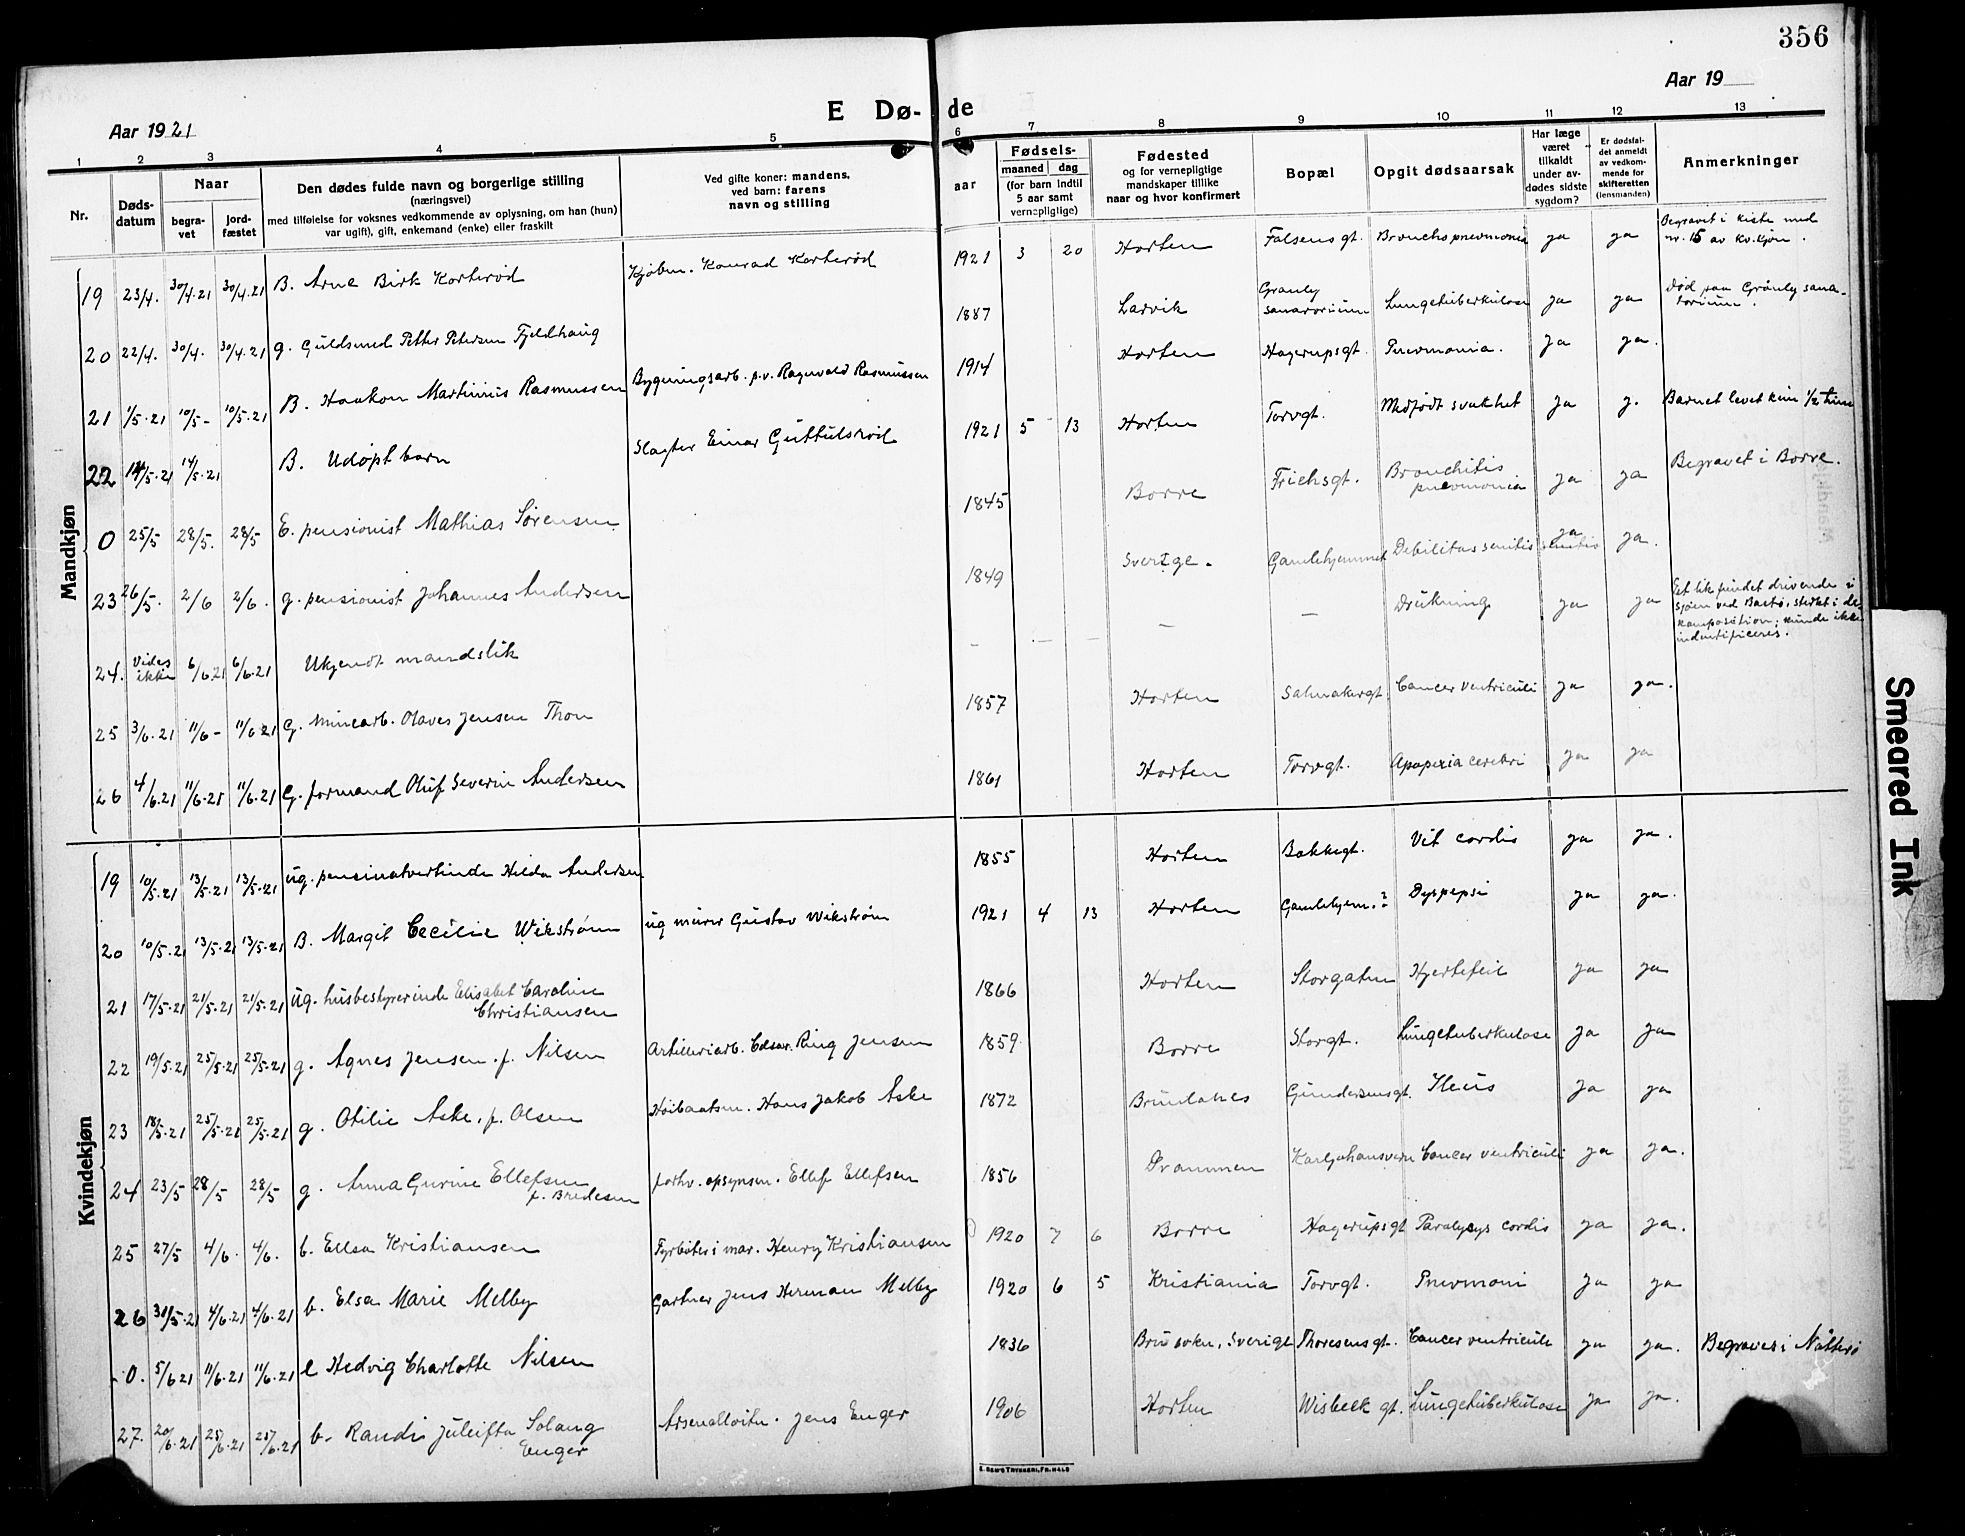 356
Aar 1921
E Dø-de
Aar 19
1 2 3 4 5 6 7 8 9 10 11 12 13
Nr.
Døds-
datum
Naar
begra-
vet
jord-
fæstet
Den dødes fulde navn og borgerlige stilling
(næringsvei)
med tilføielse for voksnes vedkommende av oplysning, om han (hun)
var ugift), gift, enkemand (enke) eller fraskilt
Ved gifte koner: mandens,
ved barn: farens
navn og stilling
aar
Fødsels-
maaned dag
(for barn indtil
5 aar samt
vernepligtige)
Fødested
og for vernepligtige
mandskaper tillike
naar og hvor konfirmert
Bopæl
Opgit dødsaarsak
Har læge
været
tilkaldt
under av-
dødes sidste
sygdom?
Er dødsfal-
det anmeldt
av vedkom-
mende for
skifteretten
(lensmanden)
Anmerkninger
Mandkjøn
19 23/4. 30/4.21 30/4.21 B. Arne Birk Korterød Kjøbm. Konrad Korterød 1921 3 20 Horten Falsens gt. Bronchopneumonia ja ja Begravet i kiste med
nr. 15 av kv.kjøn.
20 22/4. 30/4. 30/4.21 g. Guldsmed Petter Petersen Fjeldhaug 1887 Larvik Granly
sanatorium Lungetuberkulose ja ja Død paa Granly sana-
torium.
21 1/5.21 10/5- 10/5.21 B. Haakon Martinius Rasmussen Bygningsarb. p.v. Ragnvald Rasmussen 1914 Horten Hagerupsgt. Pnevmonia. ja ja.
22 14/5.21 14/5.21 B. Udøpt barn Slagter Einar Guttulsrød 1921 5 13 Horten Torvgt. Medfødt svakhet ja j. Barnet levet kun 1/2 time
0 25/5 28/5. 28/5 E. pensionist Mathias Sørensen 1845 Borre Frichsgt. Bronchitis
pnevmonia ja ja Begravet i Borre.
23 26/5. 2/6 2/6. g. pensionist Johannes Andersen 1849 Sverige. Gamlehjemmet Debilitas senilis ja ja.
24. Vides
ikke 6/6.21 6/6.21 Ukjendt mandslik — — — — — Drukning ja ja Et lik fundet drivende i
sjøen ved Bastø, sterkt i de-
komposition; kunde ikke
indentificeres.
25 3/6.21 11/6- 11/6.21 G. Minearb. Olaves Jensen Thon 1857 Horten Salmakergt Cancer ventriculi ja ja.
26 4/6.21 11/6.21 11/6.21 G. formand Oluf Severin Andersen 1861 Horten Torvgt. Apopexia cerebri ja ja
Kvindekjøn
19 10/5.21 13/5.21 13/5.21 ug. pensinatvertinde Hilda Andersen 1855 Horten Bakkegt. Vit cordis ja ja.
20 10/5.21 13/5.21 13/5.21 B. Margit Cecilie Wikstrøm ug murer Gustav Wikstrøm 1921 4 13 Horten Gamlehjem.? Dyspepsi ja ja.
21 17/5.21 21/5.21 21/5.21 ug. husbestyrerinde Elisabet Caroline
Christiansen 1866 Horten Storgaten Hjertefeil ja ja
22 19/5.21 25/5.21 25/5.21 g. Agnes Jensen. f. Nilsen Artilleriarb. Edvar. Ring Jensen 1859 Borre Storgt. Lungetuberkulose ja ja
23 18/5.21 25/5.21 25/5.21 g. Otilie Aske, f. Olsen Høibaatsm. Hans Jakob Aske 1872 Brunlanes Gundersensgt. Ileus ja ja
24 23/5 28/5 28/5 g. Anna Gurine Ellefsen
f. Bredesen forhv. opsynsm. Ellef Ellefsen 1856 Drammen Karljohansvern Cancer ventriculi ja ja.
25 27/5 4/6. 4/6. b. Ellsa Kristiansen Fyrbøter i mar. Henry Kristiansen 1920 7 6 Borre Hagerupsgt Paralysys cordis ja ja.
26 31/5.21 4/6.21 4/6.21 b. Elsa Marie Melby Gartner Jens Herman Melby 1920 6 5 Kristiania Torvgt. Pnevmoni ja ja
0. 5/6 21 11/6.21 11/6.21 e Hedvig Charlotte Nilsen 1836 Bru sokn, Sverige Thoresens gt. Cancer ventricule ja ja. Begraves i Nøtterø
27. 20/6.21 25/6.21 25/6.21 b. Randi Juleifta Solang
Enger Arsenalløitn. Jens Enger 1906 Horten Wisbeck gt. Lungetuberkulose ja ja.
Smeared Ink